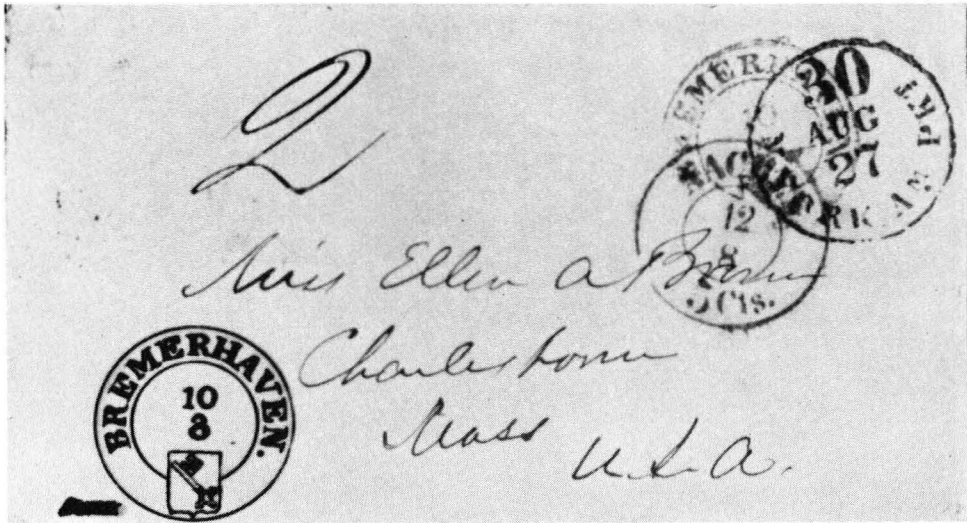 2
BREMERHAVEN
30
AUG
27
PKT
12
8
5 Cts.
Miss Ellen A Brown
Charlestown
Mass
U.S.A.
BREMERHAVEN.
10
8